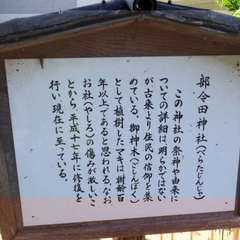 部令田神社(べらたじんじゃ)
この神社の祭神や由来に
ついての詳細は、明らかではない
が古来より住民の信仰を集
めている。御神木(ごしんぼく)
として植樹したマキは樹齢百
年以上であると思われる。なお
お社(やしろ)の傷みが激しいこ
とから、平成十七年に修復を
行い現在に至っている。